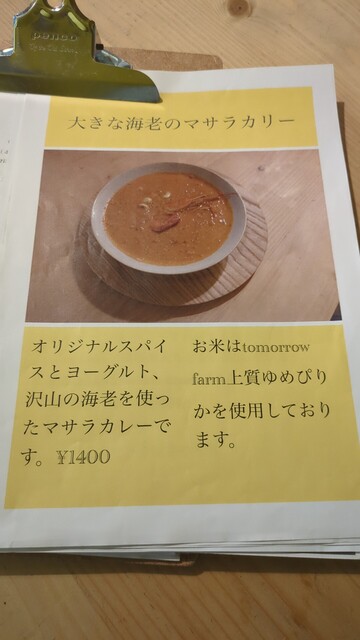 penco
大きな海老のマサラカリー
オリジナルスパイ
スとヨーグルト、
沢山の海老を使っ
たマサラカレーで
す。¥1400
お米はtomorrow
farm上質ゆめぴり
かを使用しており
ます。